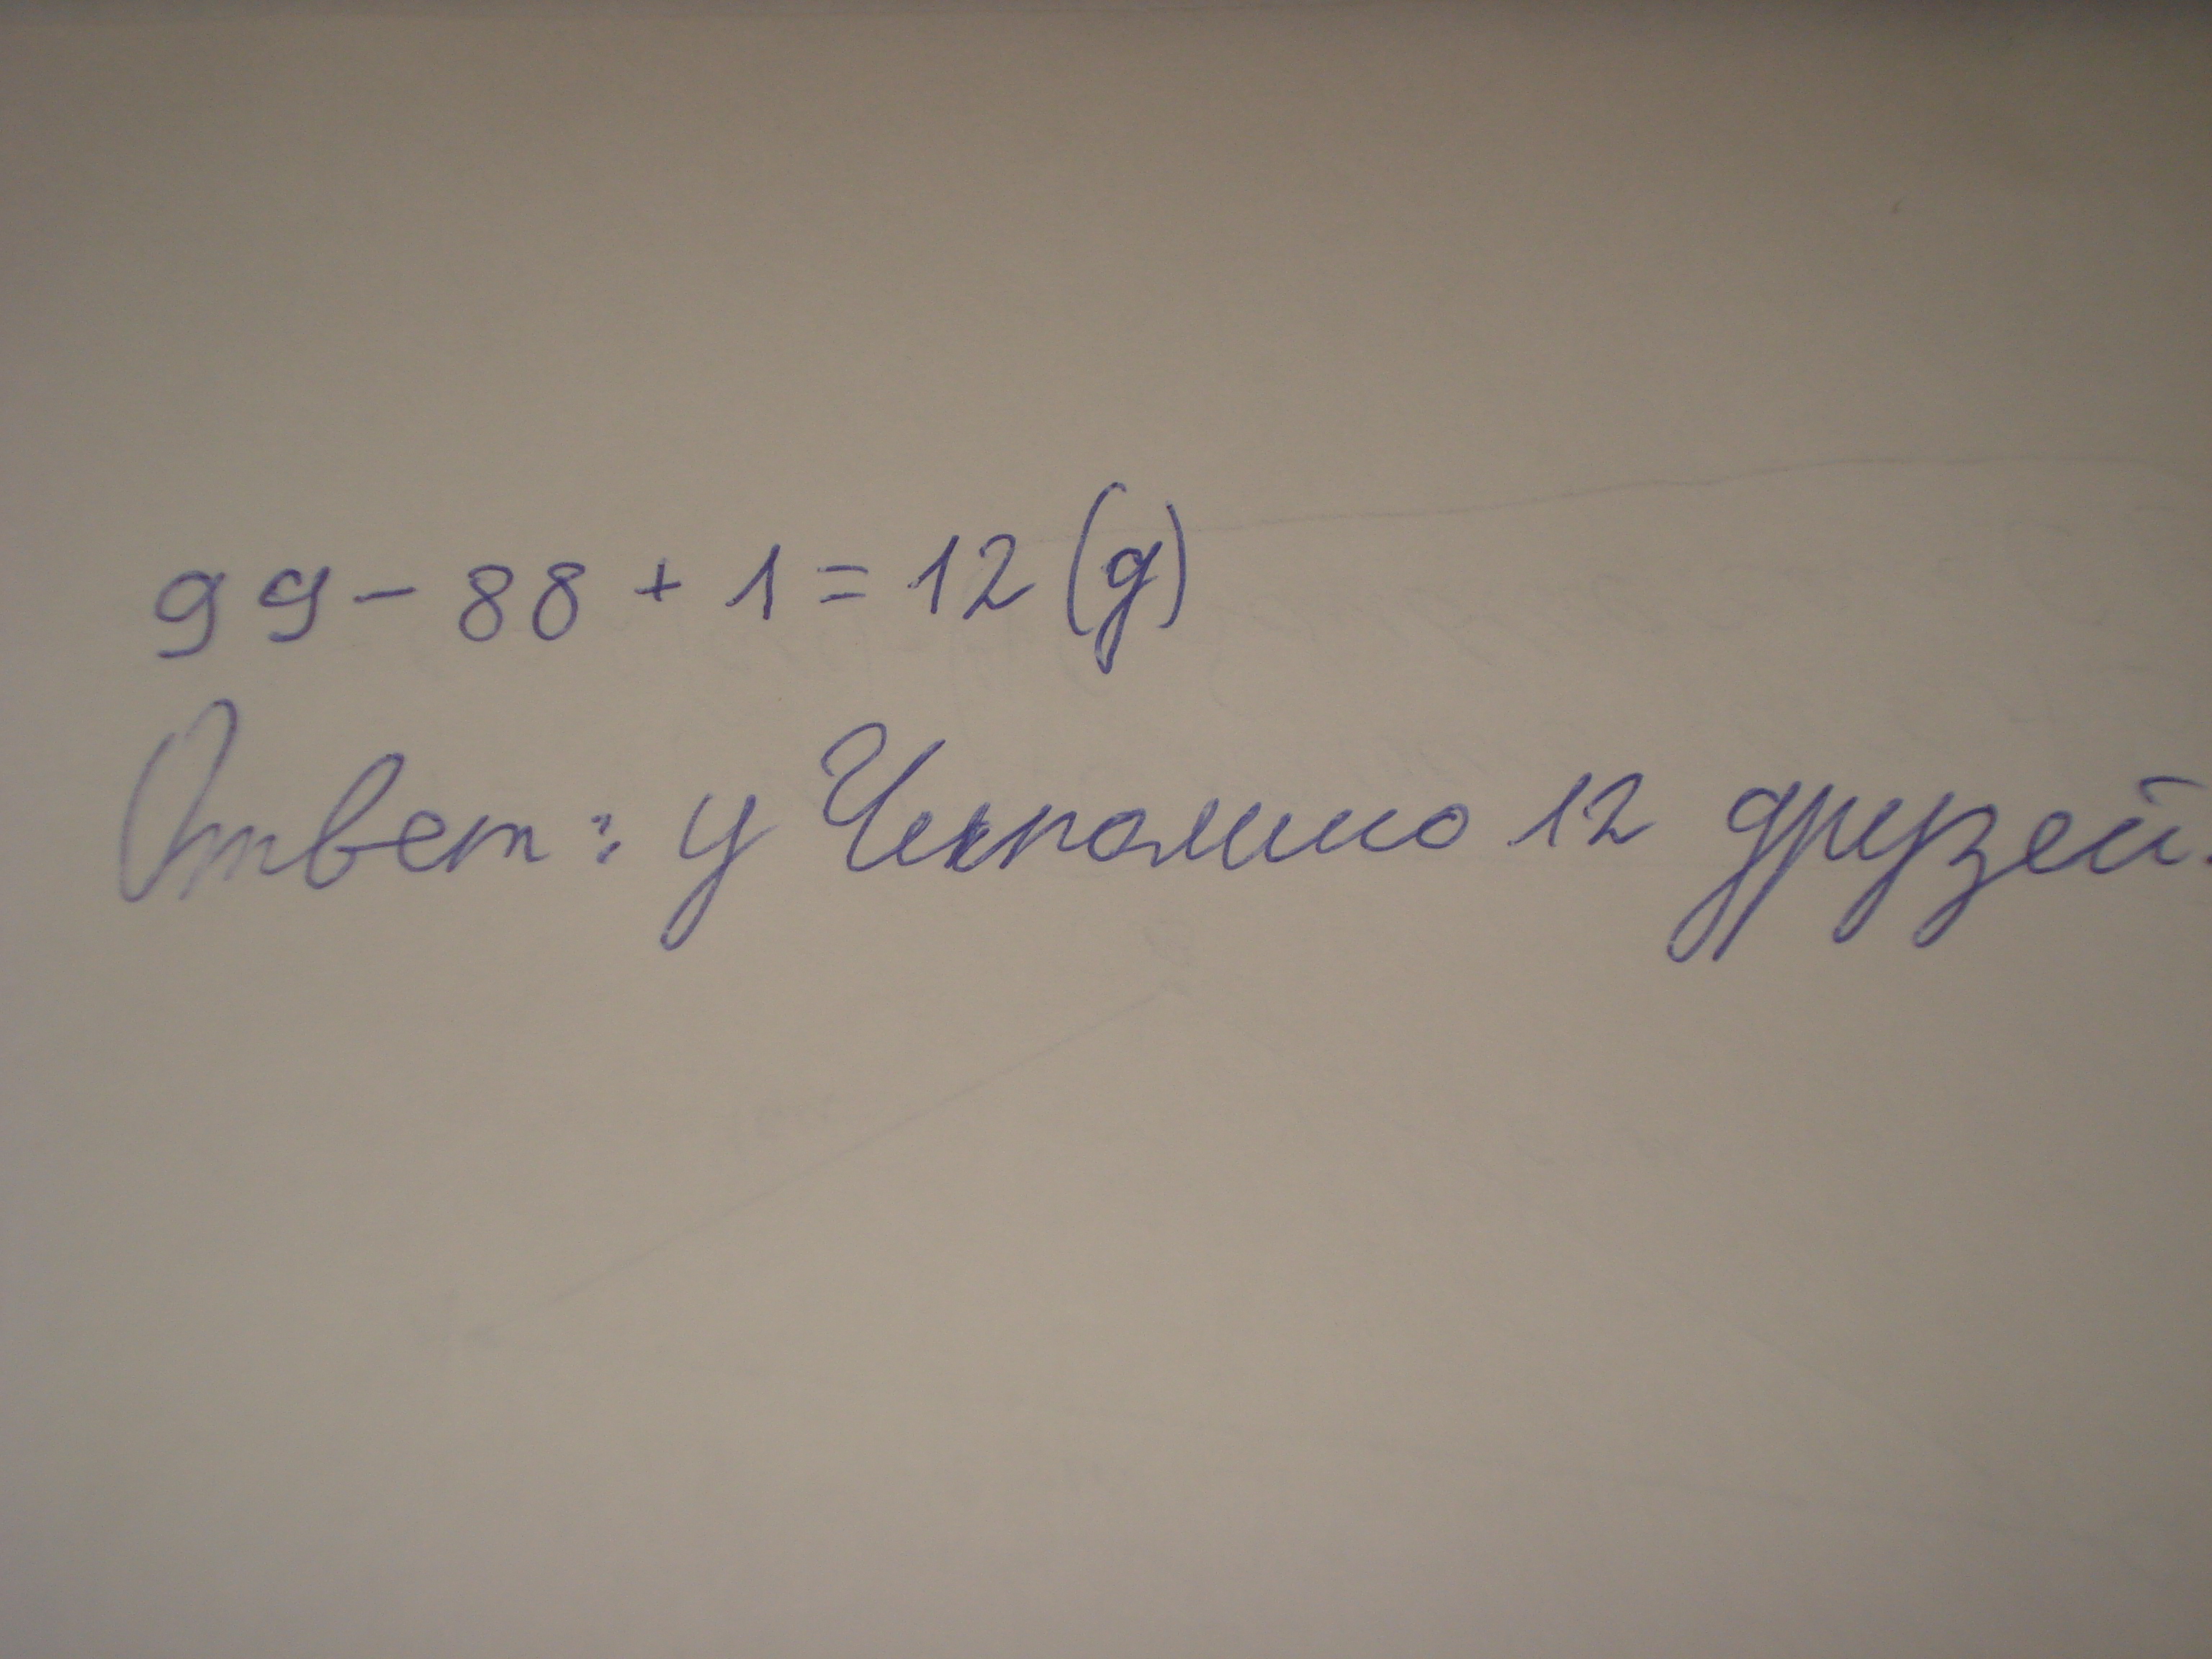 99 - 88 + 1 = 12 (д)
Ответ: у Чиполино 12 друзей.